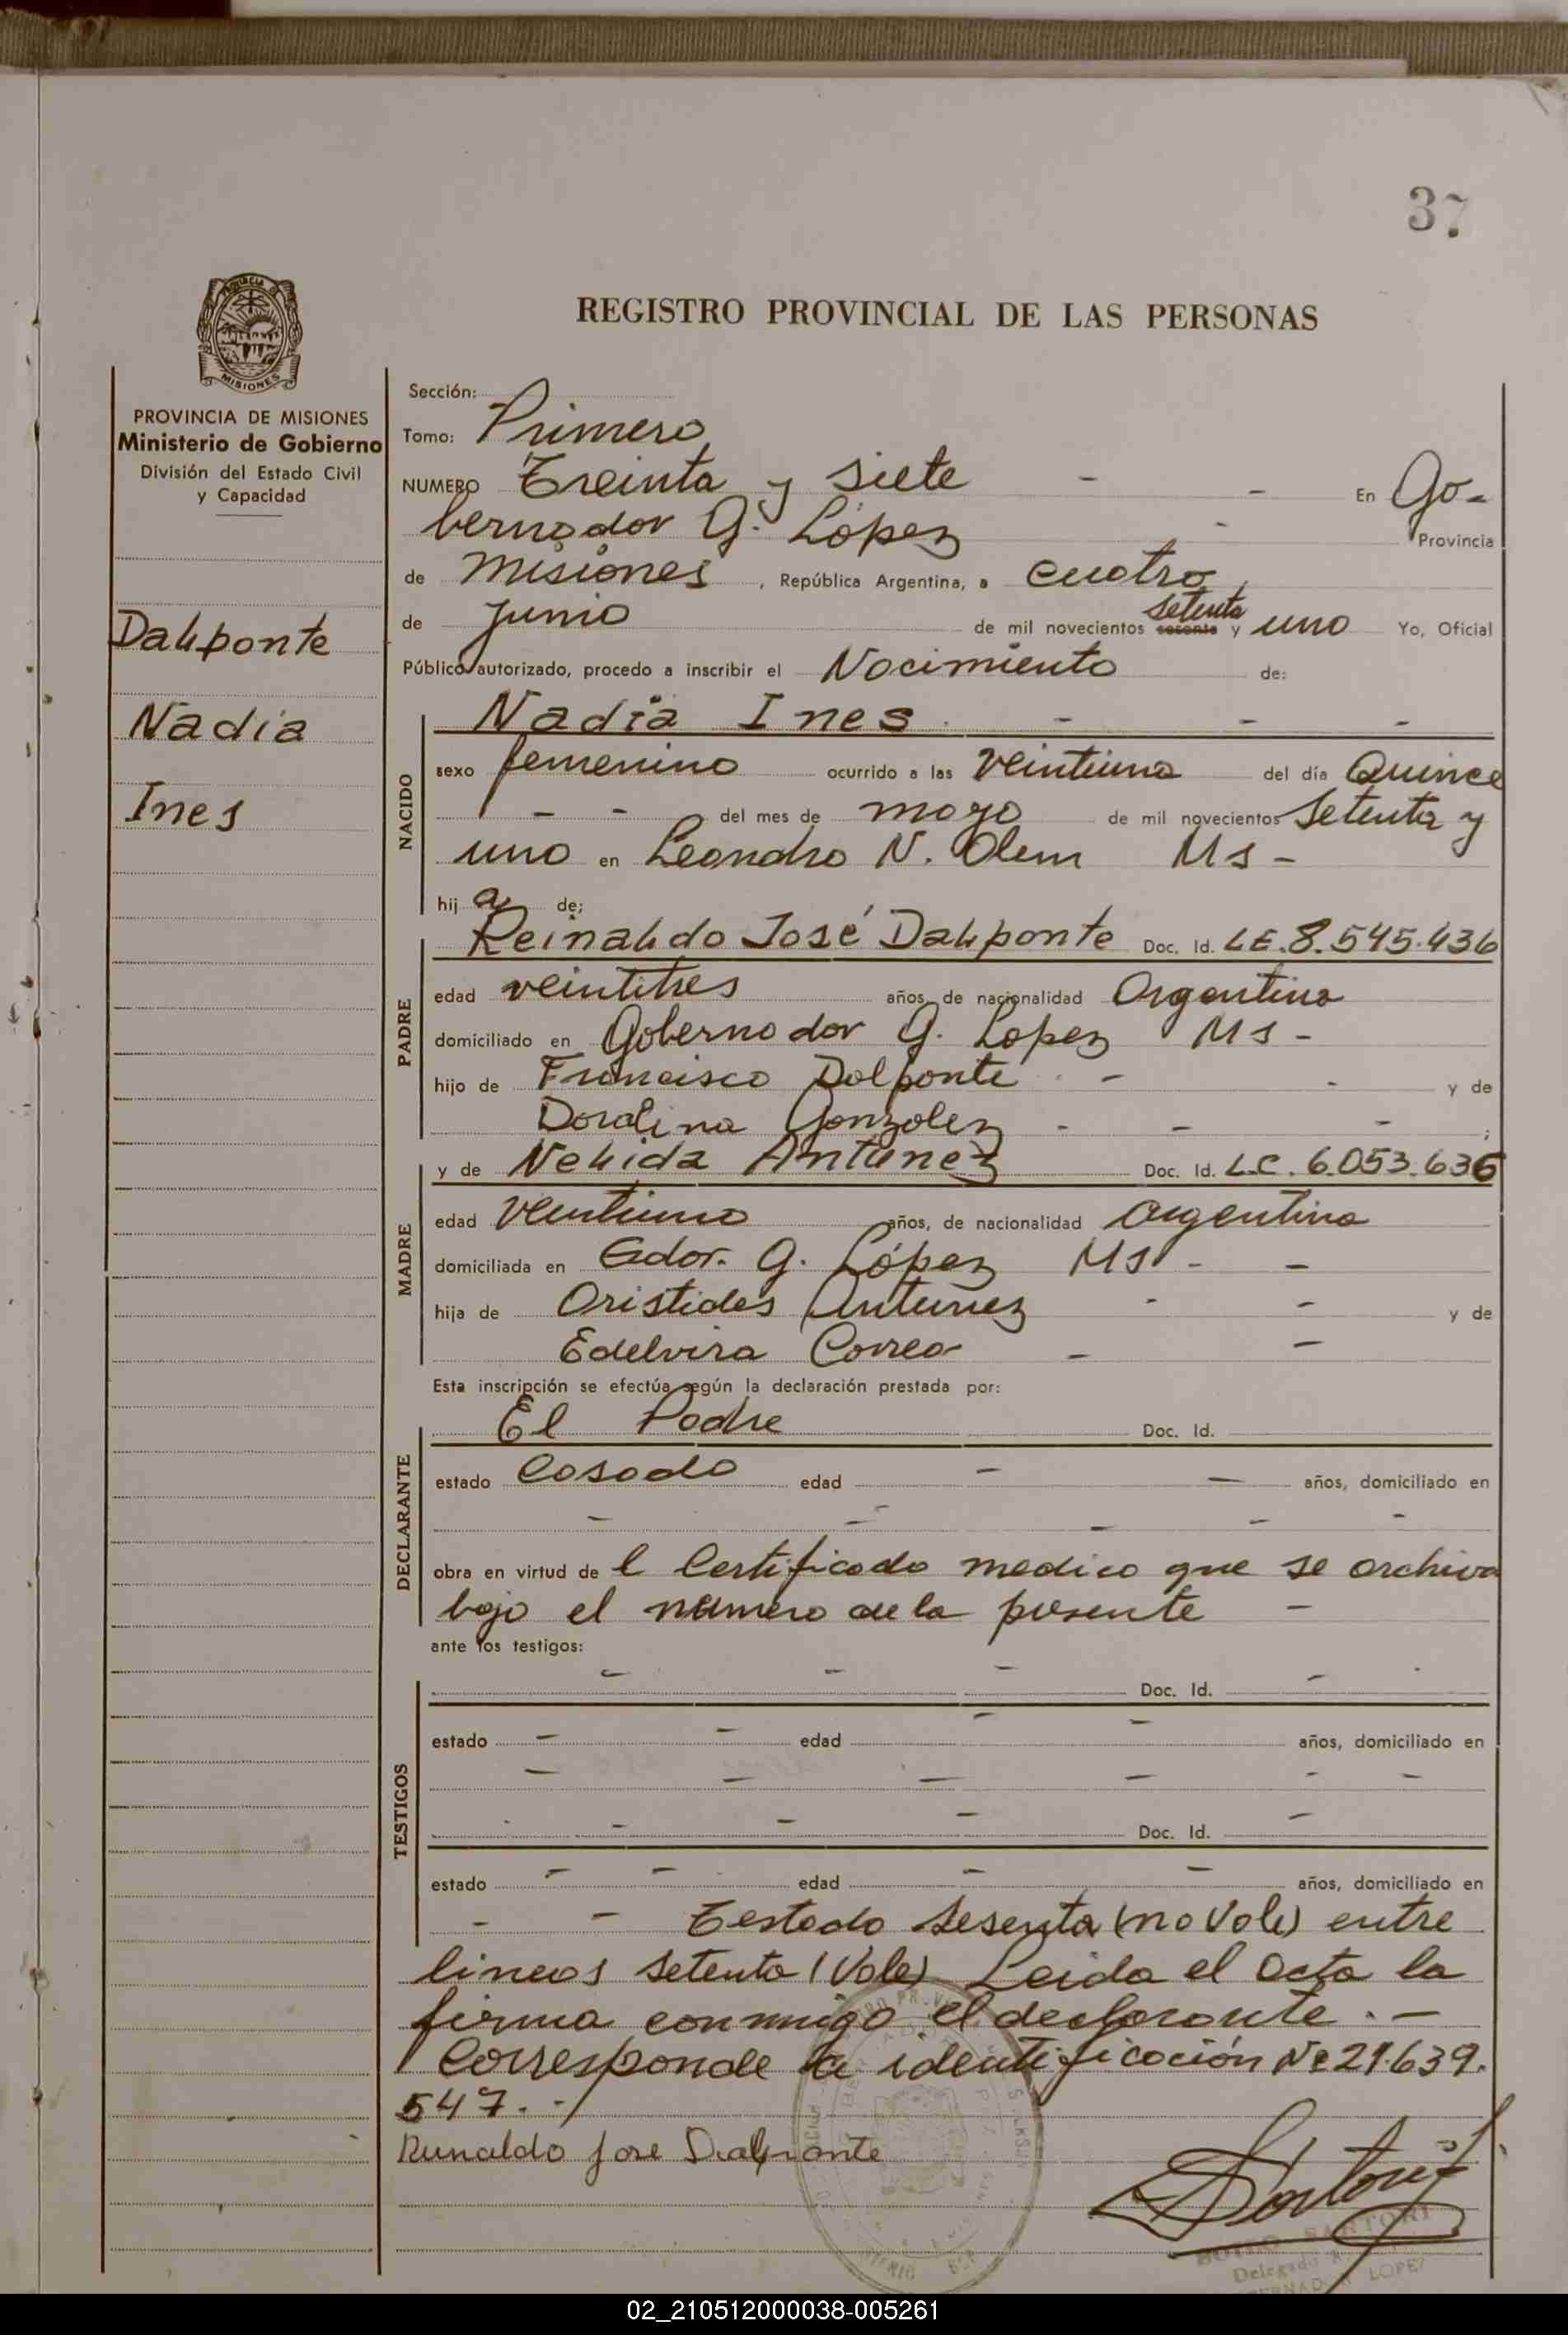 37
REGISTRO PROVINCIAL DE LAS PERSONAS
PROVINCIA DE MISIONES
Ministerio de Gobierno
División del Estado Civil
y Capacidad
Dalponte
Nadia
Ines
Sección:
Tomo: Primero
NUMERO Treinta y siete - - En Go-
bernador G. López - Provincia
de Misiones, República Argentina, a cuatro
de Junio de mil novecientos setenta sesenta y uno Yo, Oficial
Público autorizado, procedo a inscribir el Nacimiento de:
NACIDO
Nadia Ines - - -
sexo femenino ocurrido a las veintiuna del día Quince
- - del mes de mayo de mil novecientos setenta y
uno en Leandro N. Alem Ms -
hija de;
PADRE
Reinaldo José Dalponte Doc. Id. L.E. 8.545.436
edad veintitres años, de nacionalidad Argentina
domiciliado en Gobernador G. Lopez Ms -
hijo de Francisco Dalponte - - y de
Doralina Gonzalez - - - ;
MADRE
y de Nelida Antunez Doc. Id. L.C. 6.053.636
edad veintiuno años, de nacionalidad Argentina
domiciliada en Gdor. G. López Ms - -
hija de Aristides Antunez - - y de
Edelvira Correa - -
Esta inscripción se efectúa según la declaración prestada por:
DECLARANTE
El Padre Doc. Id.
estado Casado edad - - años, domiciliado en
- - - - -
obra en virtud de l Certificado medico que se archiva
bajo el numero de la presente -
ante los testigos:
TESTIGOS
- - - Doc. Id. -
estado - - edad - - años, domiciliado en
- - - - - -
- - - Doc. Id. -
estado - - edad - - años, domiciliado en
- - Testado sesenta (no Vale) entre
lineas setenta (Vale) Leida el acta la
firma conmigo el declarante. -
Corresponde a identificación Nº 21.639.
547. -
Reinaldo Jose Dalponte
Sartori
SARTORI
Delegado
LOPEZ
02_210512000038-005261